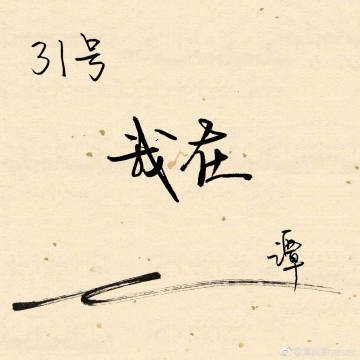 31号
我在
谭